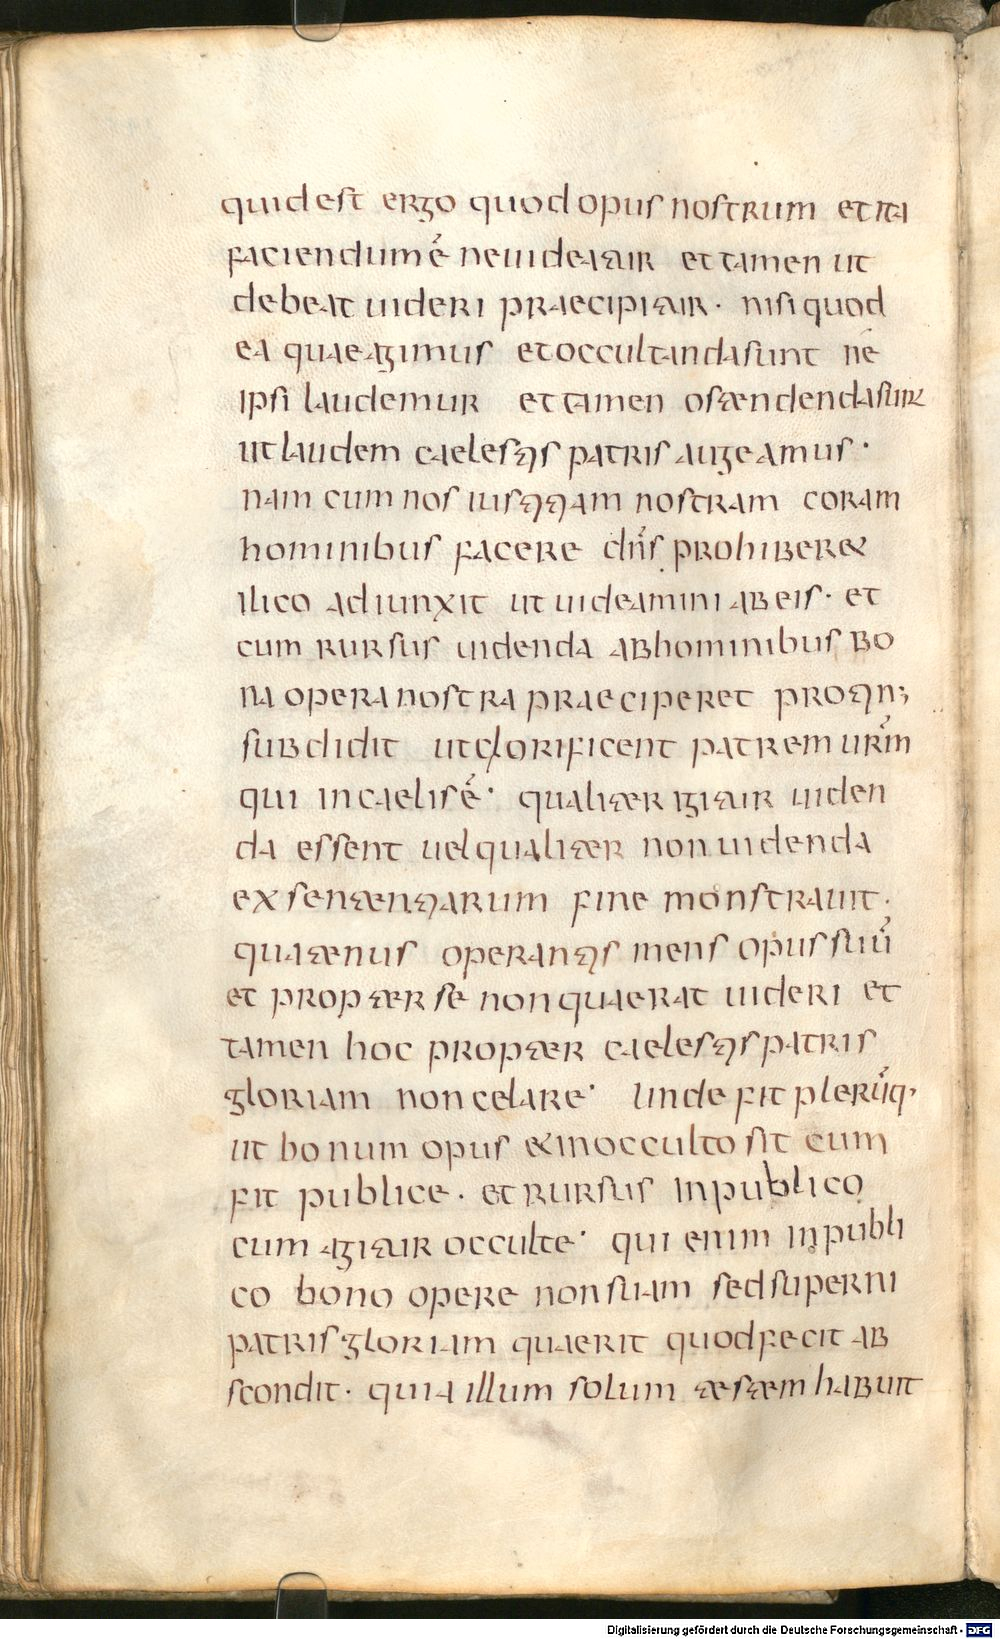 quid est ergo quod opus nostrum et ita
faciendum ē ne uideatur et tamen ut
debeat uideri praecipitur · nisi quod
ea quae agimus et occultanda sunt ne
ipsi laudemur et tamen ostendenda sunt
ut laudem caelestis patris augeamus ·
nam cum nos iustitiam nostram coram
hominibus facere dn̄s prohiberet
ilico adiunxit ut uideamini ab eis · et
cum rursus uidenda ab hominibus bo
na opera nostra praeciperet protin;
subdidit ut glorificent patrem ur̄m
qui in caelis ē · qualiter igitur uiden
da essent uel qualiter non uidenda
ex sententiarum fine monstrauit ·
quatenus operantis mens opus suū
et propter se non quaerat uideri et
tamen hoc propter caelestis patris
gloriam non celare · Unde fit plerūq·
ut bonum opus et in occulto sit cum
fit publice · et rursus in publico
cum agitur occulte · qui enim in publi
co bono opere non suam sed superni
patris gloriam quaerit quod fecit ab
scondit · quia illum solum testem habuit
Digitalisierung gefördert durch die Deutsche Forschungsgemeinschaft - DFG